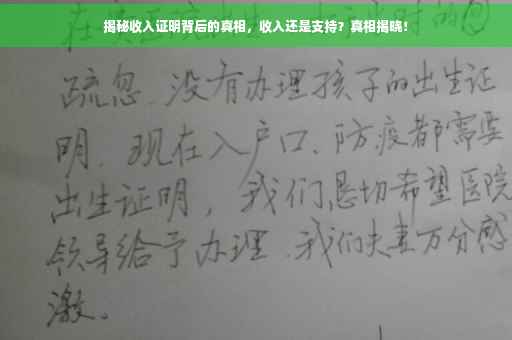 揭秘收入证明背后的真相，收入还是支持？真相揭晓！
疏忽、没有办理孩子的出生证
明、现在入户口、防疫都需要
出生证明，我们恳切希望医院
领导给予办理、我们夫妻万分感
激。